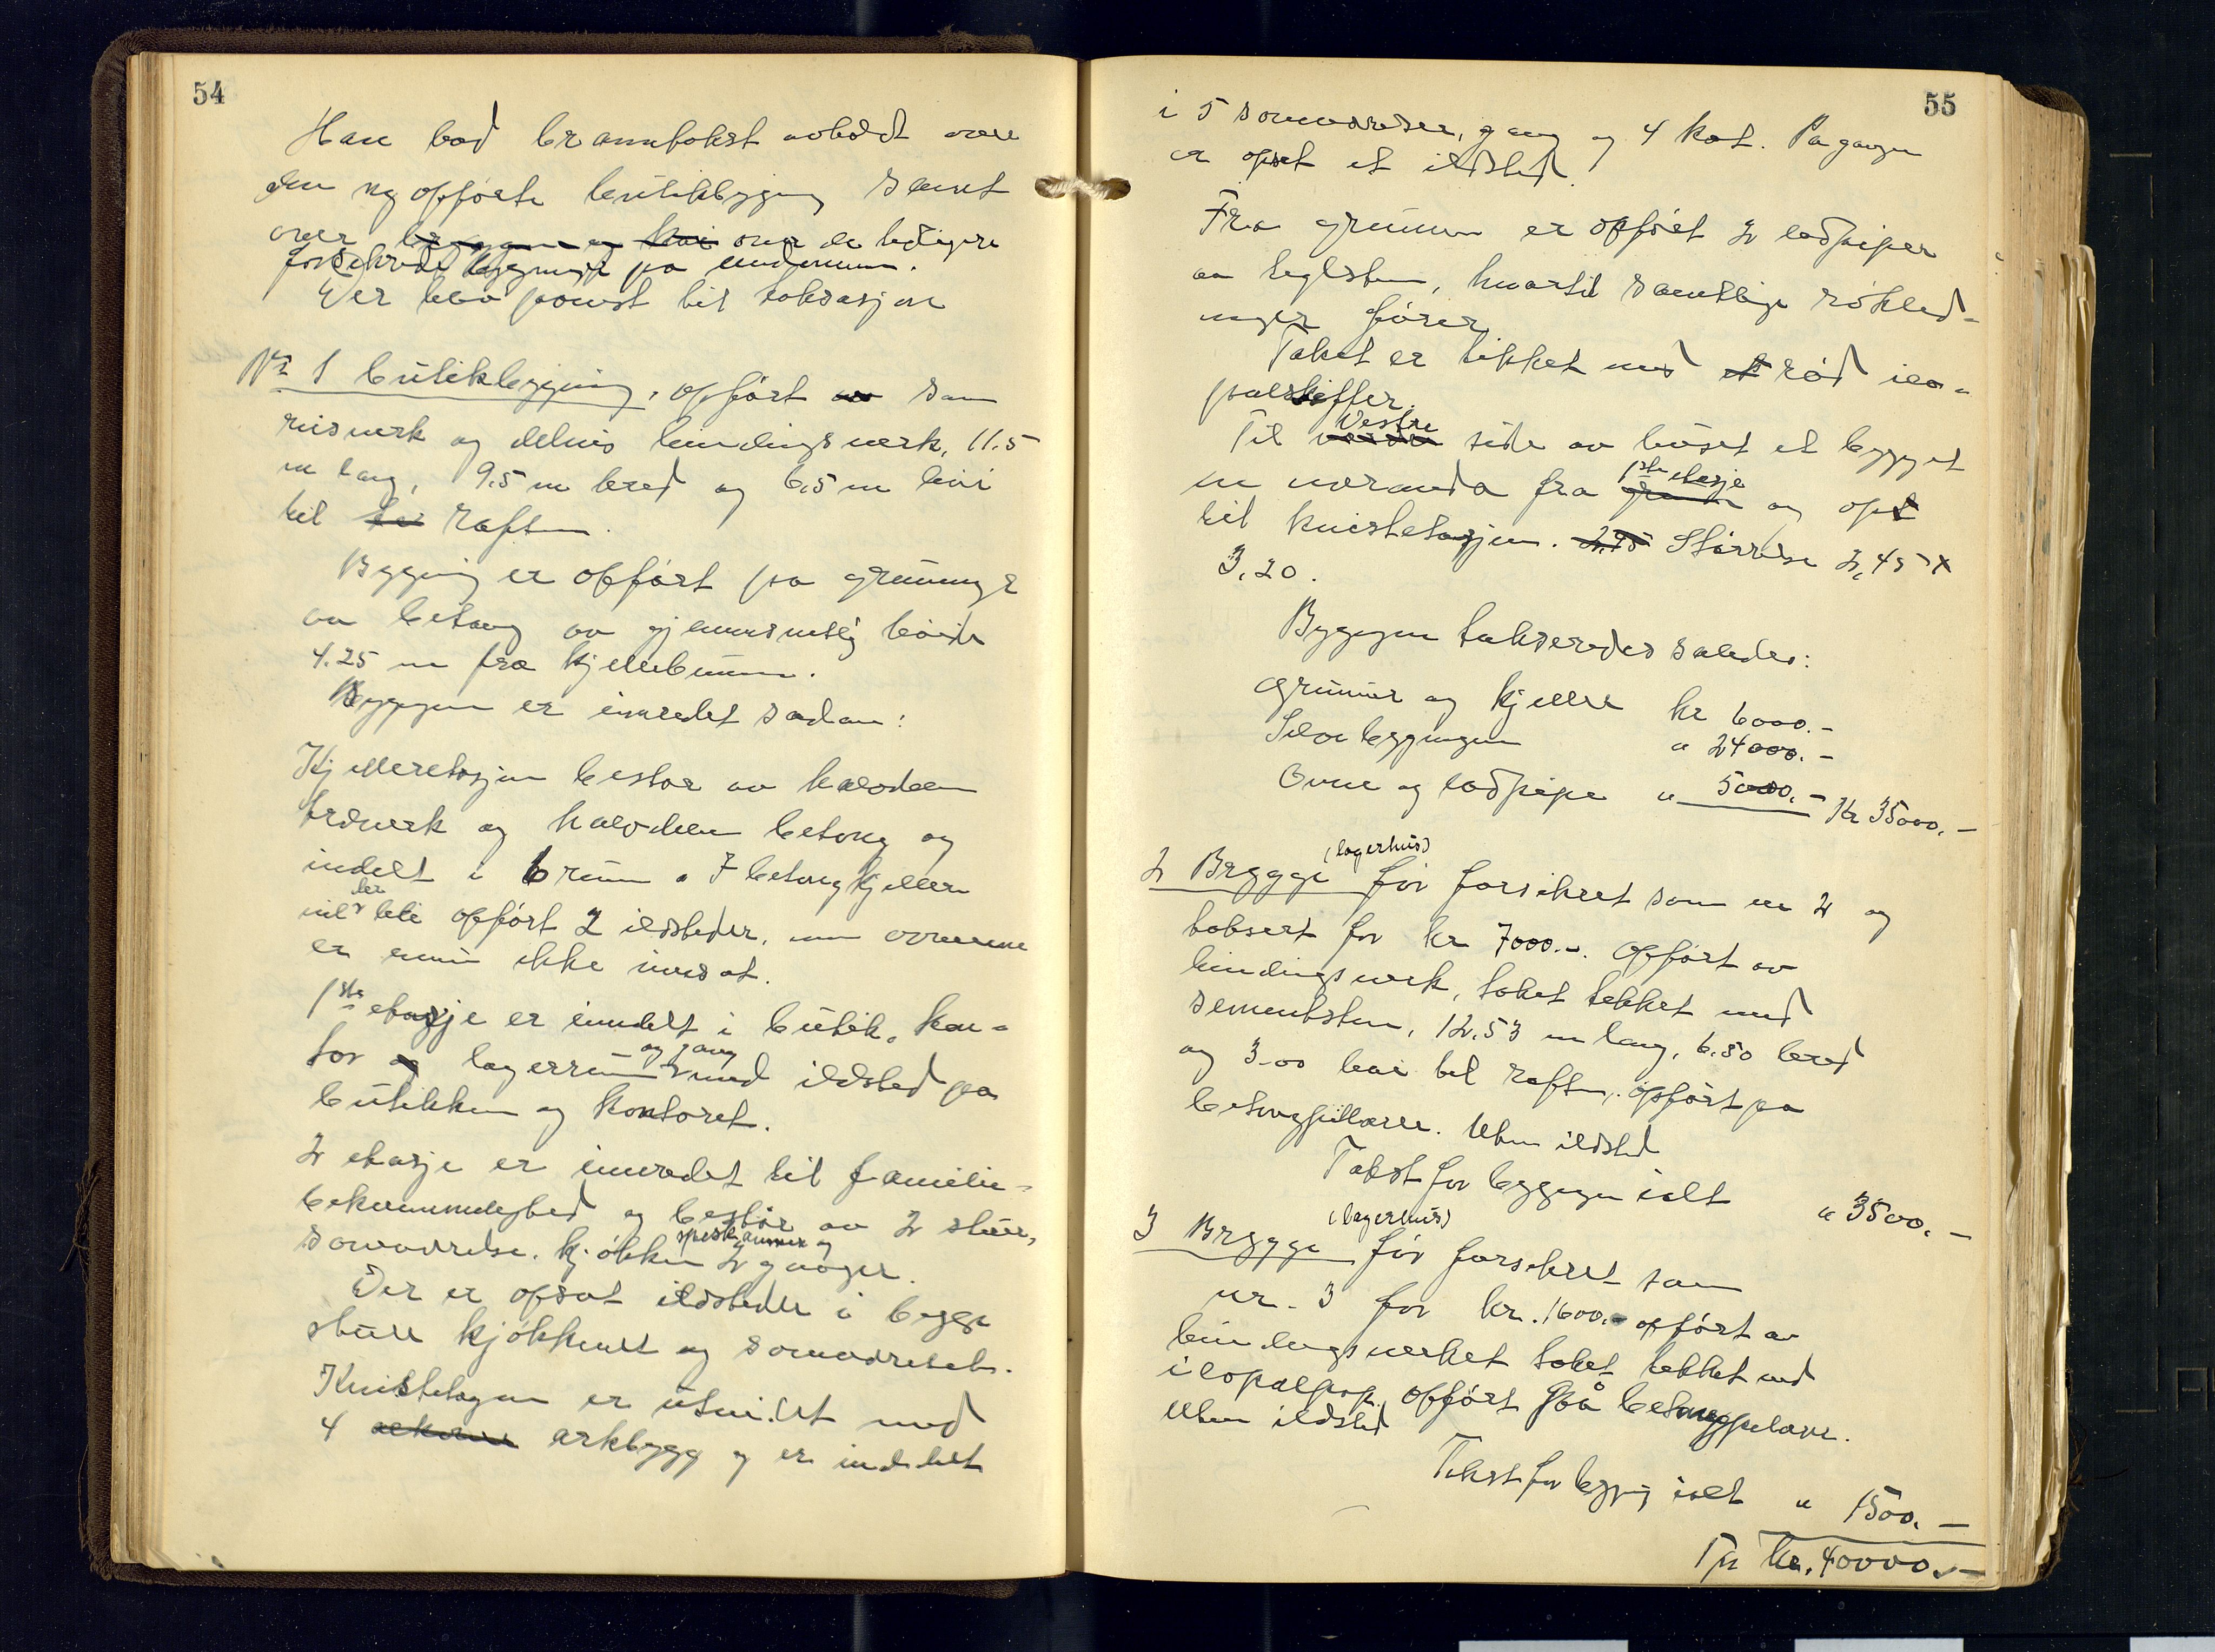 54
Han bad branntakst avholdt over
den nyopførte butikbygning samt
over bryggene og kai over de tidligere
forsikrede bygninger på eiendommen.
Der blev påvist til taksasjon
Nr 1 butikbygging, opført av som
reisverk og delvis bindingsverk, 11.5
m lang, 9.5 m bred og 6,5 m høi
til raften.
Bygning er opført på grunnmur
av betong av gjennemsnitlig høide
4.25 m fra kjellerbunnen.
Byggningen er innredet sådan:
Kjelleretasjen består av halvdelen
treverk og halvdelen betong og
indelt i 6 rum. I betongkjelleren
vil der bli opført 2 ildsteder, men ovnene
er ennu ikke innsat.
1ste etasje er inndelt i butik, kon-
tor og lagerrum og gang med ildsted på
butikken og kontoret.
2 etasje er innredet til familie-
bekvemmelighed og består av 2 stuer,
soveværelse, kjøkken spiskammer og 2 ganger.
Der er opsat ildsteder i begge
stuer kjøkkenet og soveværelset.
Kvistetagen er utvidet med
4 arkbygg og er inndelt
55
i 5 soveværelser, gang og 4 kot. På gangen
er opsat et ildsted.
Fra grunnen er opført 2 ladpiper
av teglsten, hvortil samtlige røkled-
ninger fører.
Taket er tekket med rød ilo-
palskiffer.
Til Vestre side av huset er bygget
en veranda fra 1ste etasje og op
til kvistetasjen. 2,45 Størrelse 2,45 x
3.20.
Byggngen takseredes således:
Grunnmur og kjeller kr 6000.-
Selve byggningen " 24000.-
Ovne og ladpipe " 5000.- Kr 35000.-
2 Brygge (lagerhus) før forsikret som nr 2 og
taksert for kr 7000.-. Opført av
bindingsverk, taket tekket med
sementsten, 12.53 m lang, 6.50 bred
og 3.00 høi til raften, opført på
betongpillarer. Uten ildsted
Takst for byggngen ialt " 3500.-
3 Brygge (lagerhus) før forsikret som
nr. 3 for kr. 1600.- opført av
bindingsverket taket tekket med
ilopalpap, opført på betongpilarer.
Uten ildsted
Takst for bygning ialt " 1500.-
Tils. Kr. 40000.-